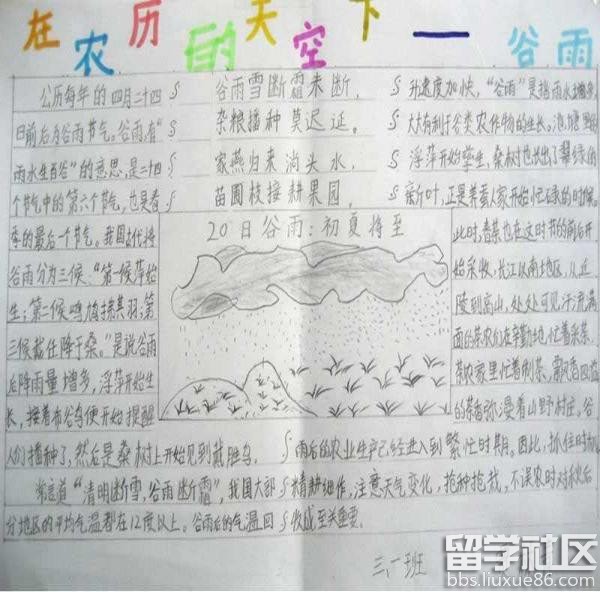 在农历的天空下——谷雨
公历每年的四月二十四
日前后为谷雨节气。谷雨有“
雨水生百谷”的意思,是二十四
个节气中的第六个节气,也是春
季的最后一个节气。我国古代将
谷雨分为三候:“第一候萍始
生;第二候鸣鸠拂其羽;第
三候戴任降于桑。”是说谷雨
后降雨量增多,浮萍开始生
长,接着布谷鸟便开始提醒
人们播种了,然后是桑树上开始见到戴胜鸟。
常言道“清明断雪,谷雨断霜”,我国大部
分地区的平均气温都在12度以上。谷雨后的气温回
谷雨雪断霜未断,
杂粮播种莫迟延。
家燕归来淌头水,
苗圃枝接耕果园。
20日谷雨:初夏将至
升速度加快,“谷雨”是指雨水增多,
大大有利于谷类农作物的生长。池塘里的
浮萍开始孳生,桑树也长出了翠绿的
新叶,正是养蚕人家开始忙碌的时候。
此时,春茶也在这时节的前后开
始采收,长江以南地区,从丘
陵到高山,处处可见汗流满
面的茶农们在辛勤地忙着采茶,
茶农家里忙着制茶,飘香四溢
的茶香弥漫着山野村庄。谷
雨后的农业生产已经进入到繁忙时期。因此,抓住时机,
精耕细作,注意天气变化,抢种抢栽,不误农时对秋后
收成至关重要。
三、一班
留学社区
bbs.liuxue86.com